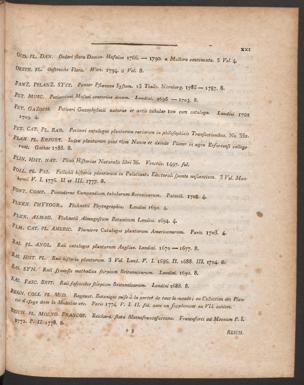 XXI
OED. FL. DAN. Oederi flora Danica. Hafniae 1766. — 1790. a Mullero continuata. 5 Vol. 4.
OESTR. FL. Oestreichs Flora. Wien. 1794. 2 Vol. 8.
PANZ. PFLANZ. SYST. Panzer Pflanzen System. 13 Theile. Nurnberg. 1786 — 1787. 8.
PET. MUSC. Petiverii Musei centuriae decem. Londini. 1695 — 1703. 8.
PET. GAZOPH. Petiveri Gazophylacii naturae et artis tabulae cum catalogo. Londini 1702
1709. 4.
PET. CAT. PL. RAR. Petiveri catalogus plantarum rariorum in philosophicis Transactionibus. No
PLAN. FL. ERFORT. Planer
Gothae 1788. 8.
PLIN. HIST. NAT. Plinii Historiae Naturalis libri 36. Venetiis. 1497. fol.
POLL. PL. PAL. Pollichii historia plantarum in Palatinatu Electorali sponte nascentium. 3 Vol. Man-
hemii V. I. 1776. II et III. 1777. 8.
PONT. COMP. Pontederae Compendium tabularum Botanicarum. Patavii. 1718. 4.
PLUKN. PHYTOGR. Pluknetii Phytographia. Londini 1691. 4.
PLUKN. ALMAG. Pluknetii Almagestum Botanicum Londini 1696. 4.
PLUM. CAT. PL. AMERIC. Plumiere Catalogus plantarum Americanarum. Paris 1703. 4.
RAI. PL. ANGL. Raii catalogus plantarum Angliae. Londini. 1670 — 1677. 8.
RAI. HIST. PL. Raii historia plantarum. 3 Vol. Lond. V. I. 1686. II. 1688. III. 1704.
RAI. SYN. Raii synopsis methodica stirpium Britannicarum. Londini. 1690. 8.
RAI. FASC. BRIT. Raii fasciculus stirpium Britannicarum. Londini 1688. 8.
REGN. COLL. PL. MED. Regnault. Botanique mise à la portée de tous le monde; ou Collection des Plan-
tes d'usage dans la Medecine etc. Paris 1774. V. I. II. fol. avec un supplement au VII. cahiers.
REICH. FL. MOENO FRANCOF. Reichard. flora Moenofrancofurtana. Francofurti ad Moenum P. I.
1772. P. II. 1778. 8.
REICH.